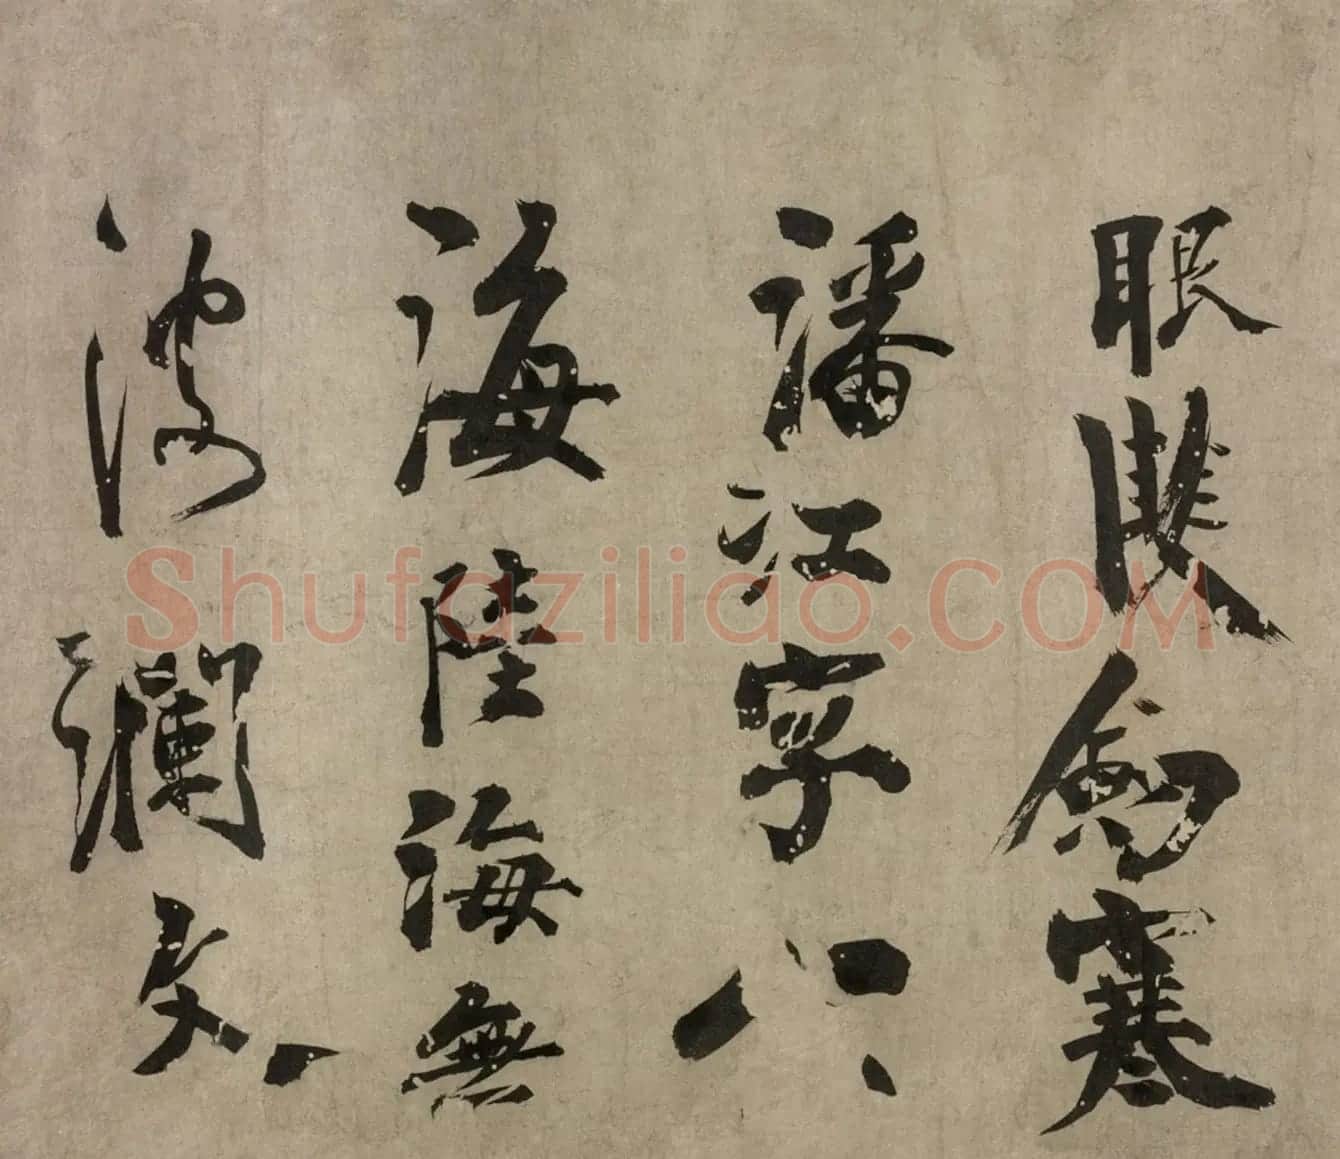 眼雙劍寒
潘江字八
海陸海無
波瀾
Shufaziliao.COM